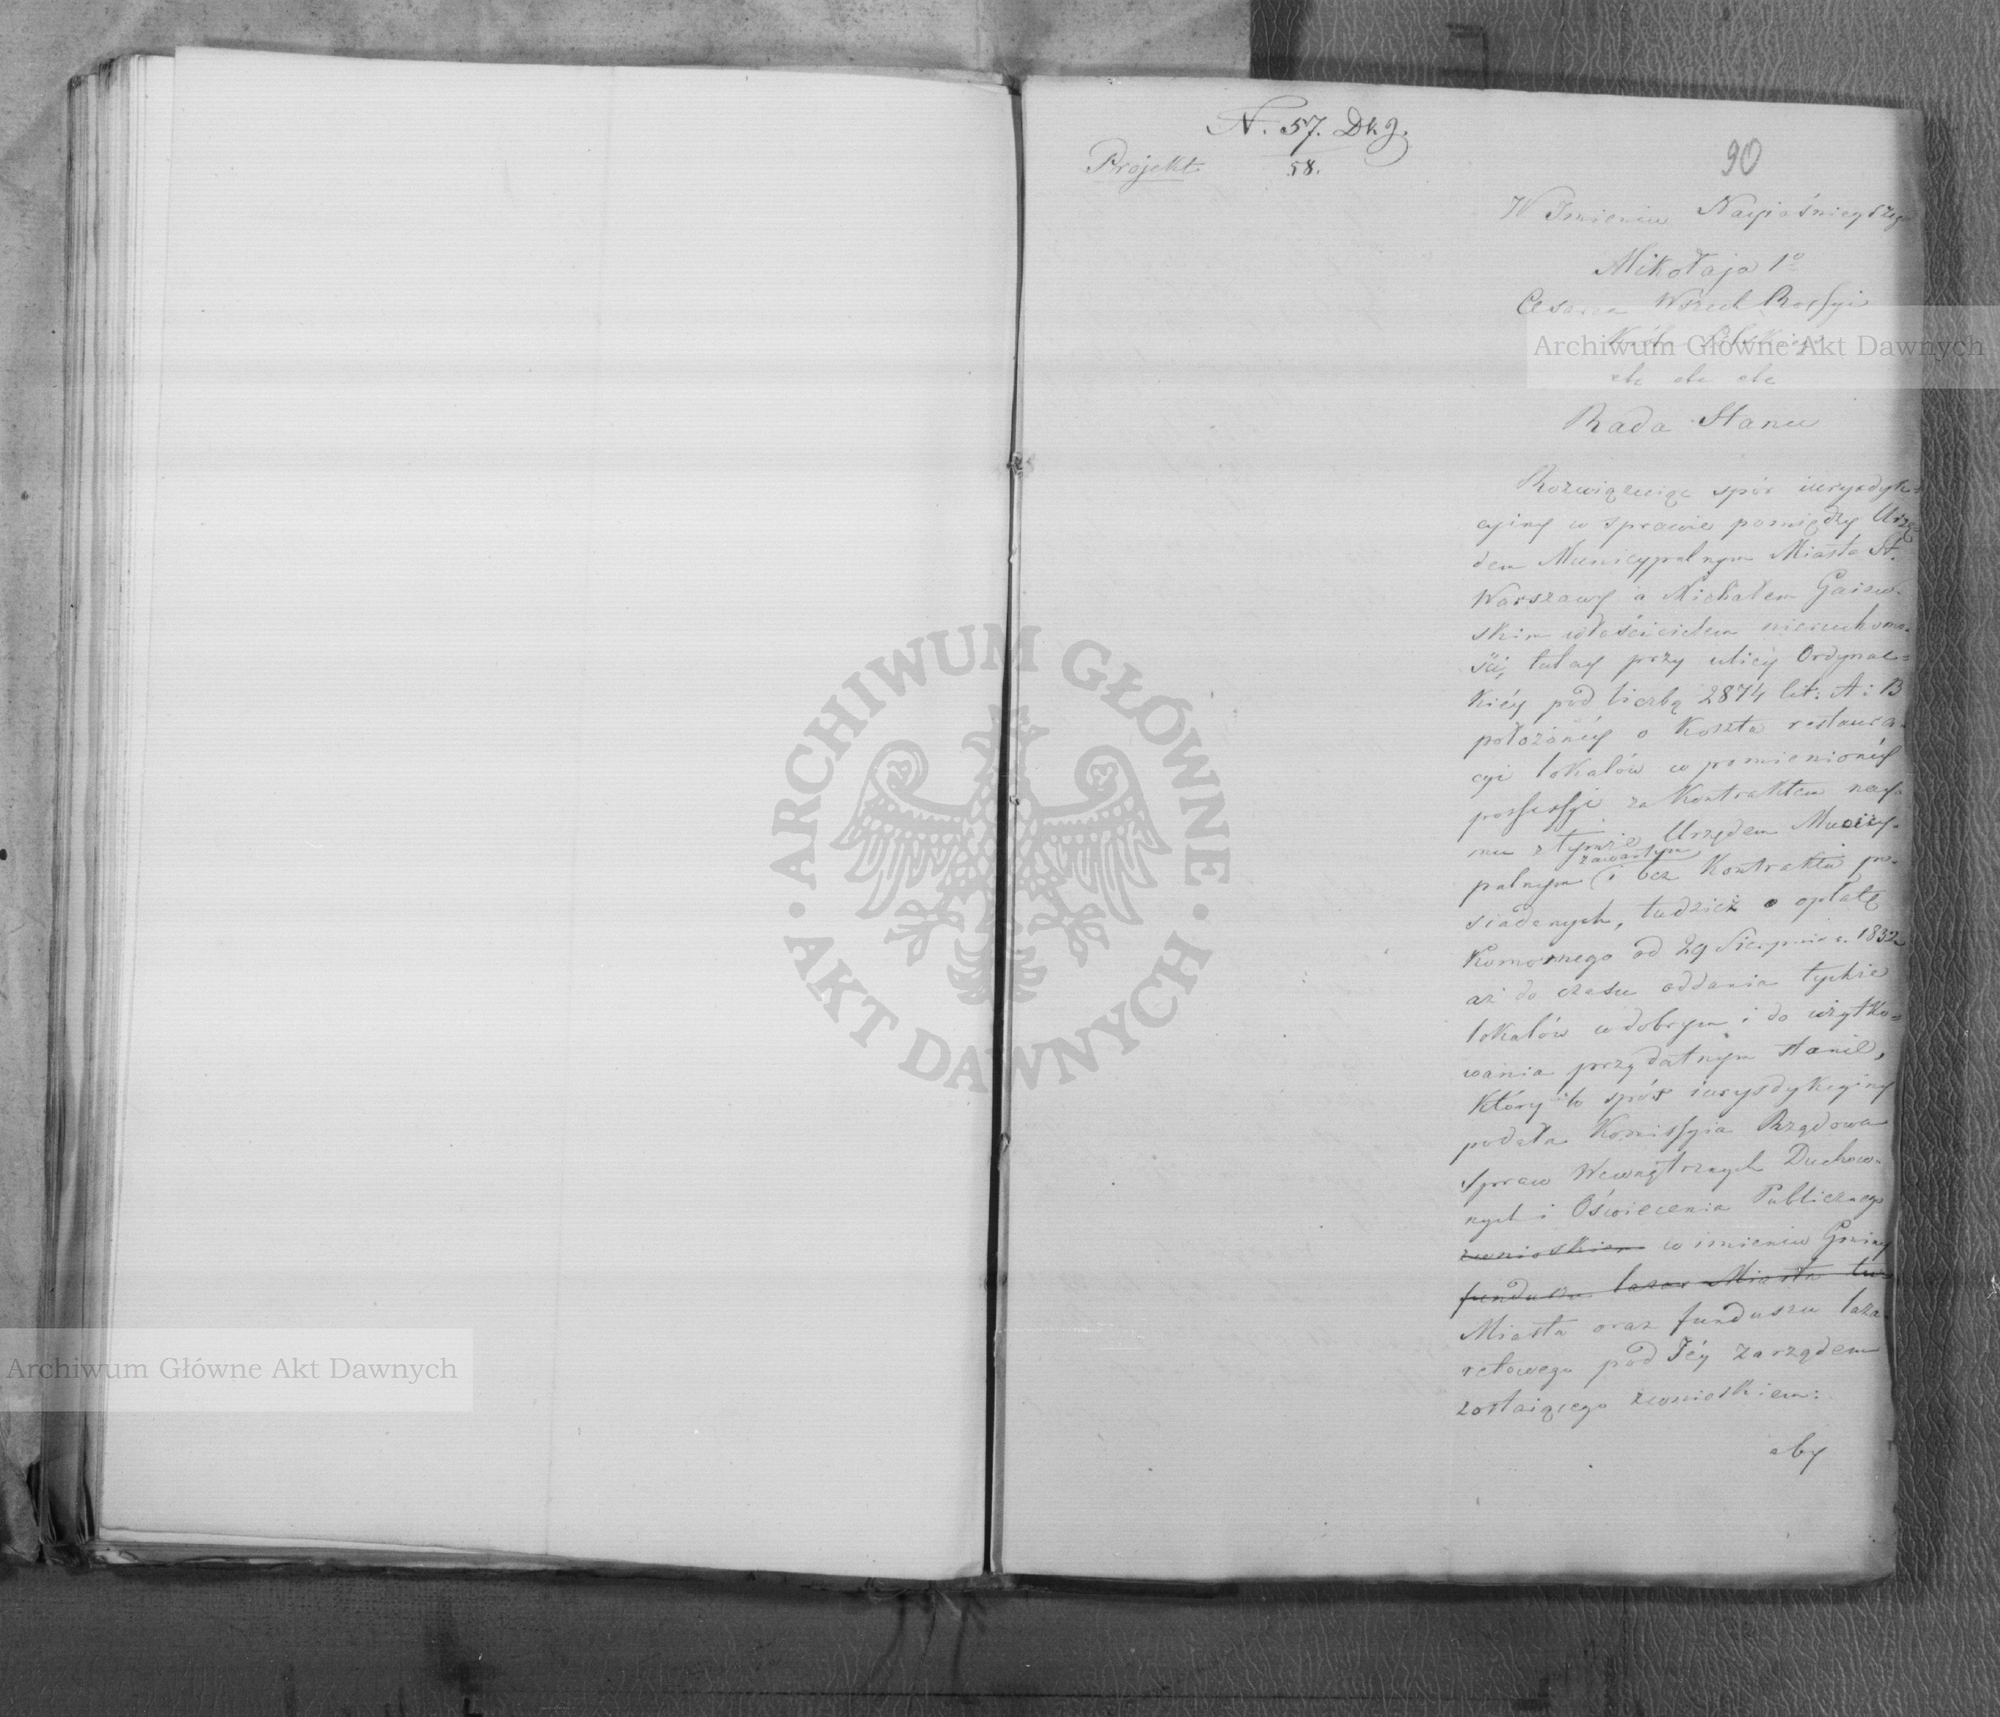 N. 57. Dkg.
58.
Projekt
90
W Imieniu Nayjaśnieyszego
Mikołaja 1º
Cesarza Wszech Rossyi
Króla Polskiego
etc etc etc
Rada Stanu
Rozwiązuiąc spór iurysdyk=
cyiny w sprawie pomiędzy Urzę=
dem Municypalnym Miasta St.
Warszawy a Michałem Gaiew-
skim właścicielem nieruchomo-
ści, tutay przy ulicy Ordynac=
kiéy pod liczbą 2874 lit: A i B
położonéy o koszta restaura-
cyi lokalów w pomienionéy
possessyi za kontraktem nay
mu z tymże Urzędem Municy-
palnym zawartym i bez kontraktu po-
siadanych, tudzież o opłatę
komornego od 29 Sierpnia r. 1832
aż do czasu oddania tychże
lokalów w dobrym i do użytko=
wania przydatnym stanie,
który to spór iurysdykcyiny
podała Kommissyia Rządowa
Spraw Wewnętrznych Duchow-
nych i Oświecenia Publicznego
zwnioskiem w imieniu Gminy
funduszu lazar Miasta tu
Miasta oraz funduszu laza-
retowego pod Jéy zarządem
zostaiącego zwnioskiem:
aby
Archiwum Główne Akt Dawnych
ARCHIWUM GŁÓWNE
AKT DAWNYCH
Archiwum Główne Akt Dawnych